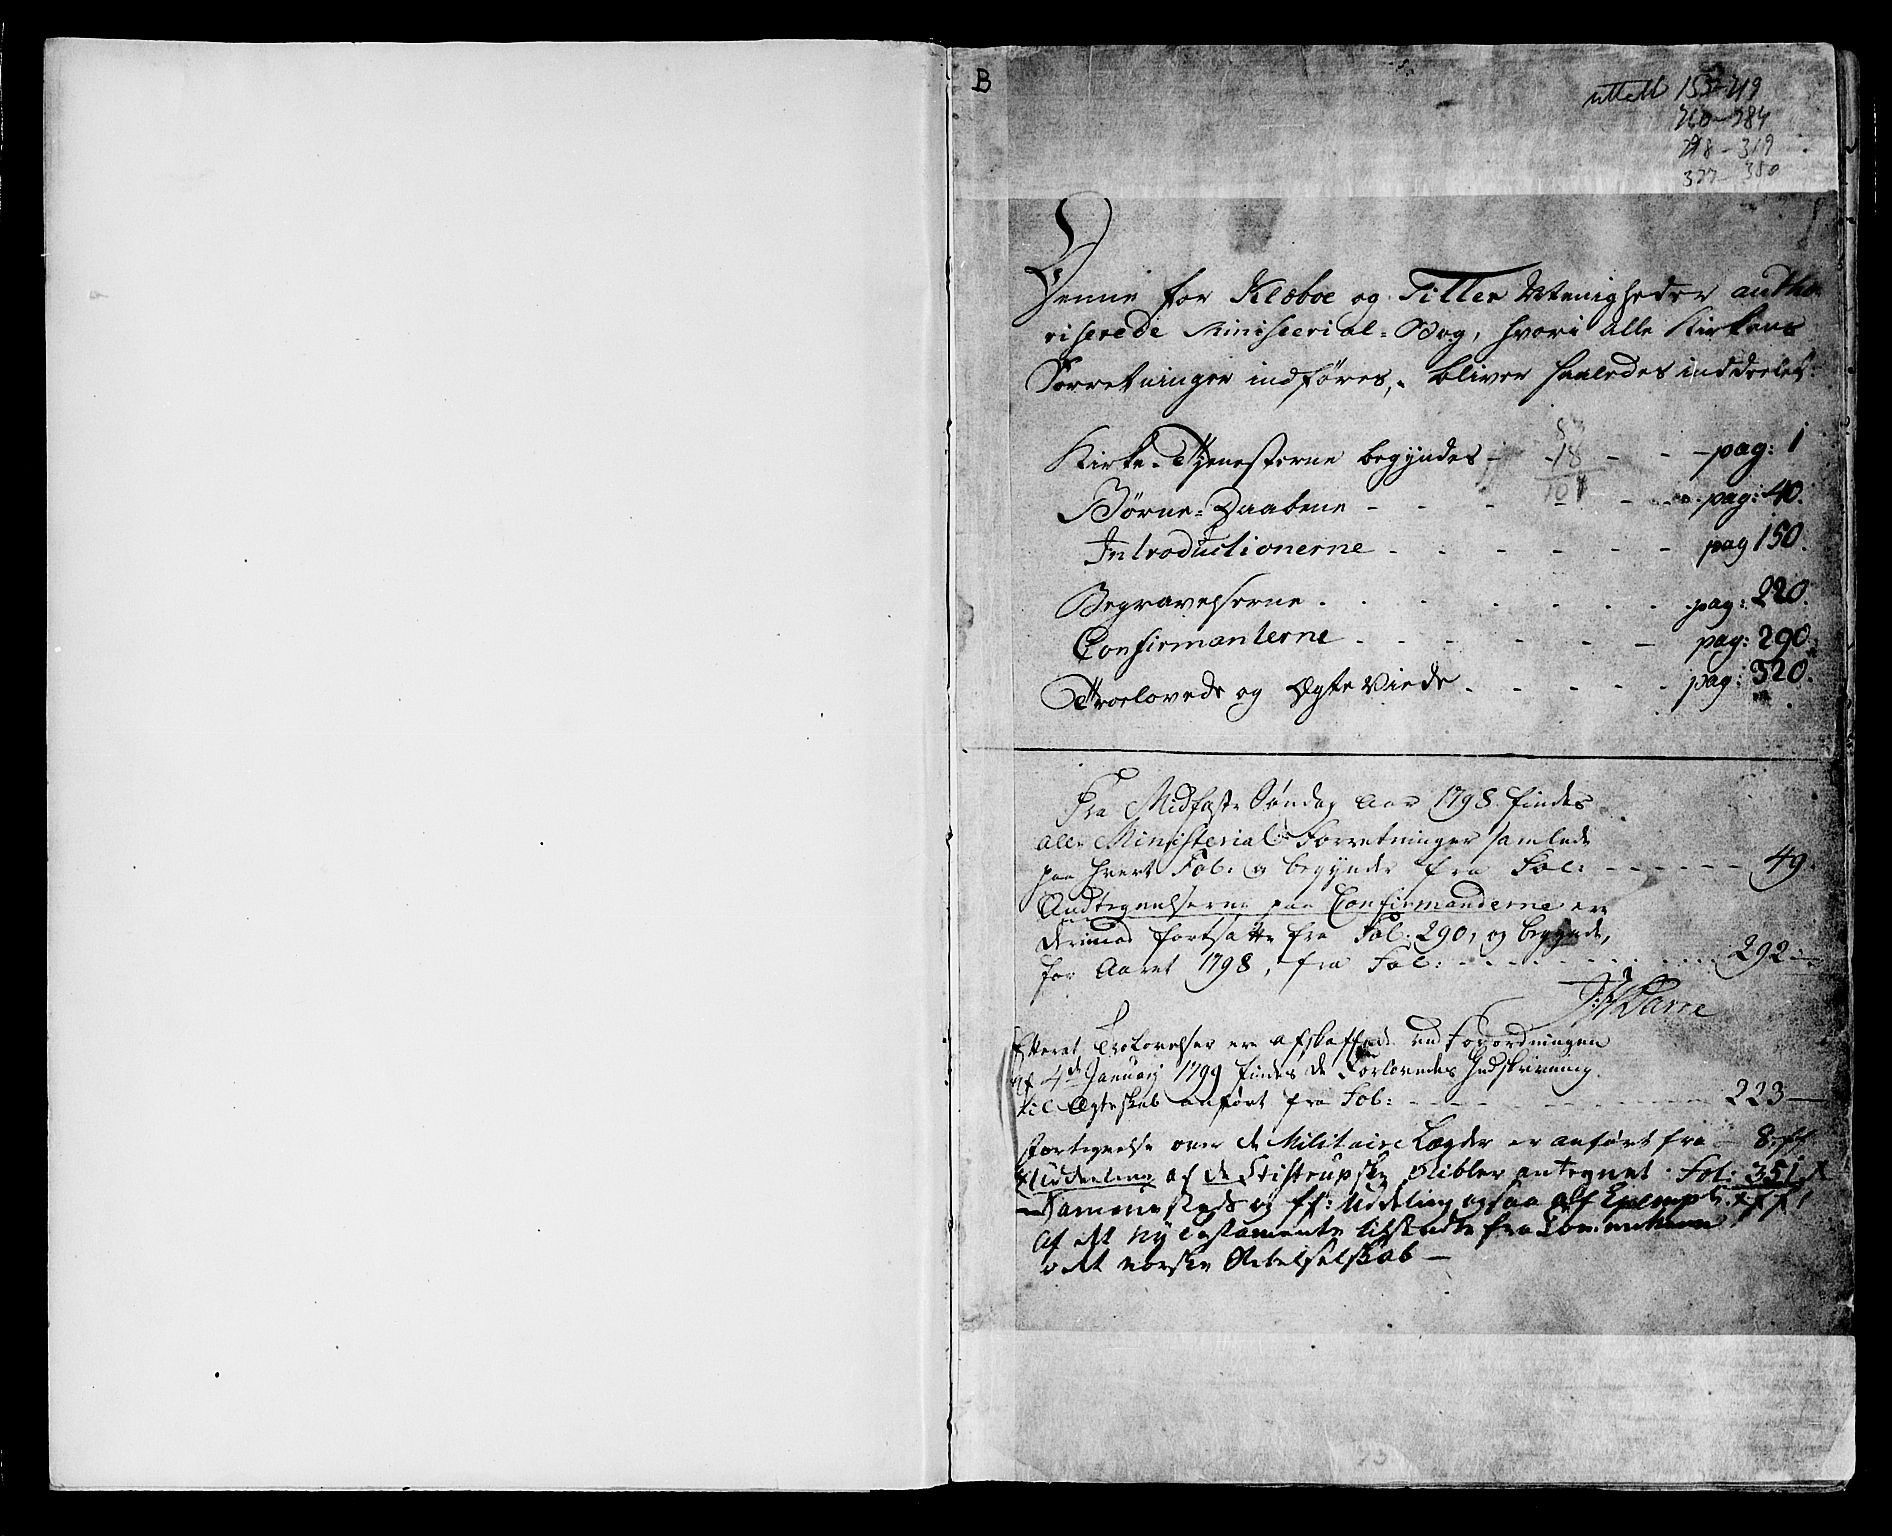 B
uttatt 153-219
260-284
298-319
327-350
Denne for Klæboe og Tiller Menigheder autho
riserede Ministerial-Bog, hvori alle Kirkens
Forretninger indføres, bliver saaledes inddeelet:
Kirke-Tjenesterne begyndes - - - pag: 1
18
101
Børne-Daabene - - - - pag: 40.
Introductionerne - - - - - pag 150.
Begravelserne . . . . . . pag: 220.
Confirmanterne - - - - - pag: 290.
Troelovede og Ægte Viede . . . . . pag: 320.
Fra Midfaste Søndag Aar 1798 findes
alle Ministerial Forretninger samlede
paa hvert Fol: og begynder fra Fol: - - - - - - 49.
Andtegnelserne paa Confirmanderne ere
derimod fortsatte fra Fol: 290, og begynde,
for Aaret 1798, fra Fol: - - - - - - - 292 -
Darre
Efterat Trolovelser ere afskaffede ved Forordningen
af 4de Januarj 1799 findes de Forlovedes Indskrivning
til Ægteskab anført fra Fol: - - - - - - 223 -
Fortegnelse over de Militaire Lægder er anført fra - 8. ff
Uddeling af de Stistrupske Bibler antegnet Fol: 351
Sammesteds og ff: Uddeling ogsaa af Exempl.
af det nye Testamente tilsendte fra
det norske Bibelselskab -